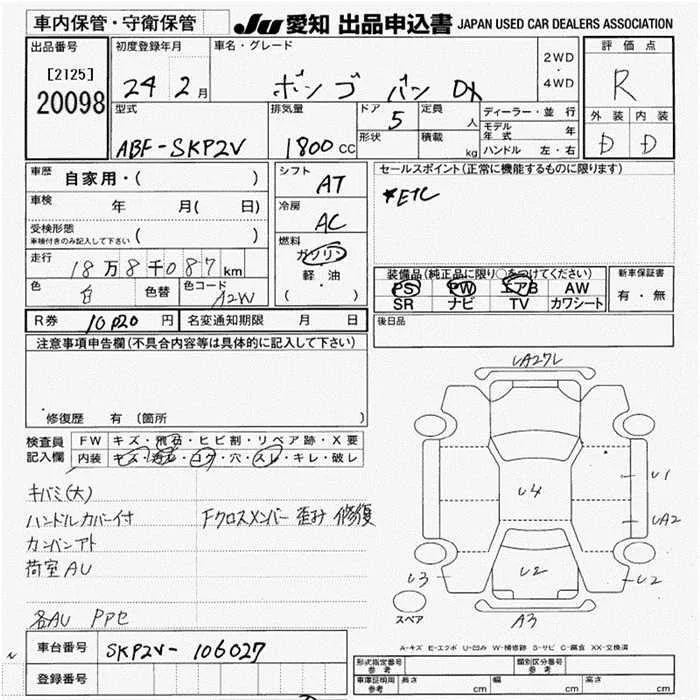 車内保管・守衛保管
JU 愛知 出品申込書 JAPAN USED CAR DEALERS ASSOCIATION
出品番号
[2125]
20098
初度登録年月
24 2月
車名・グレード
ボンゴ バン DX
2WD
・
4WD
評価点
R
型式
ABF-SKP2V
排気量
1800 CC
ドア
5
定員
人
形状
積載
kg
ディーラー・並行
モデル年式 年
ハンドル 左・右
外装 内装
D D
車歴 自家用・( )
車検 年 月( 日)
受検形態
車検付きのみ記入して下さい ( )
走行 18万8千087km
色 白 色替 色コード A2W
R券 10820 円 名変通知期限 月 日
シフト
AT
冷房
AC
燃料
ガソリン
軽・油
( )
セールスポイント(正常に機能するものに限ります)
*ETC
装備品(純正品に限り○をつけてください)
PS PW エアB AW
SR ナビ TV カワシート
新車保証書
有・無
後日品
注意事項申告欄(不具合内容等は具体的に記入して下さい)
修復歴 有 〔箇所 〕
検査員記入欄
FW キズ・飛石・ヒビ割・リペア跡・X要
内装 キズ・汚レ・コゲ・穴・スレ・キレ・破レ
キバミ(大)
ハンドルカバー付 Fクロスメンバー 歪み 修復
カンバンアト
荷室AU
各AU PPセ
車台番号 SKP2V-106027
登録番号
UA27L
U4
U1
UA2
U3
U2
U2
A3
スペア
A-キズ E-エクボ U-凹み W-補修跡 S-サビ C-腐食 XX-交換済
形式指定番号 参考
類別区分番号 参考
車庫証明用 参考 長さ cm 幅 cm 高さ cm